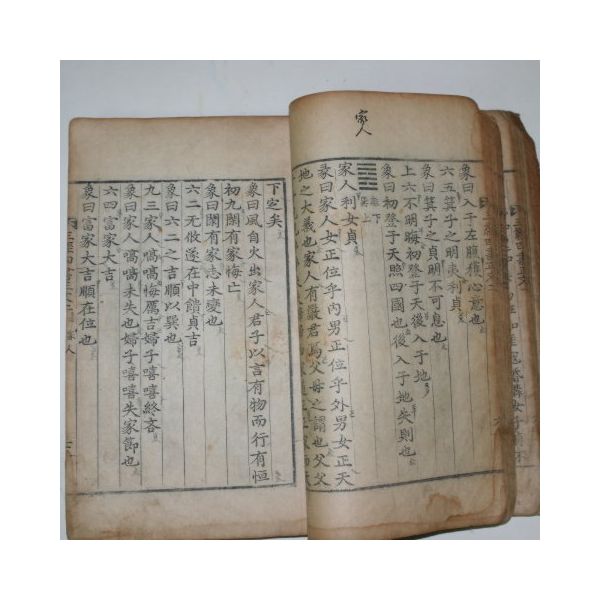 家人
象曰入于左腹獲心意也
六五箕子之明夷利貞
象曰箕子之貞明不可息也
上六不明晦初登于天後入于地
象曰初登于天照四國也後入于地失則也
離下
巽上
家人利女貞
彖曰家人女正位乎內男正位乎外男女正天
地之大義也家人有嚴君焉父母之謂也父父
下定矣
象曰風自火出家人君子以言有物而行有恒
初九閑有家悔亡
象曰閑有家志未變也
六二无攸遂在中饋貞吉
象曰六二之吉順以巽也
九三家人嗃嗃悔厲吉婦子嘻嘻終吝
象曰家人嗃嗃未失也婦子嘻嘻失家節也
六四富家大吉
象曰富家大吉順在位也
家人